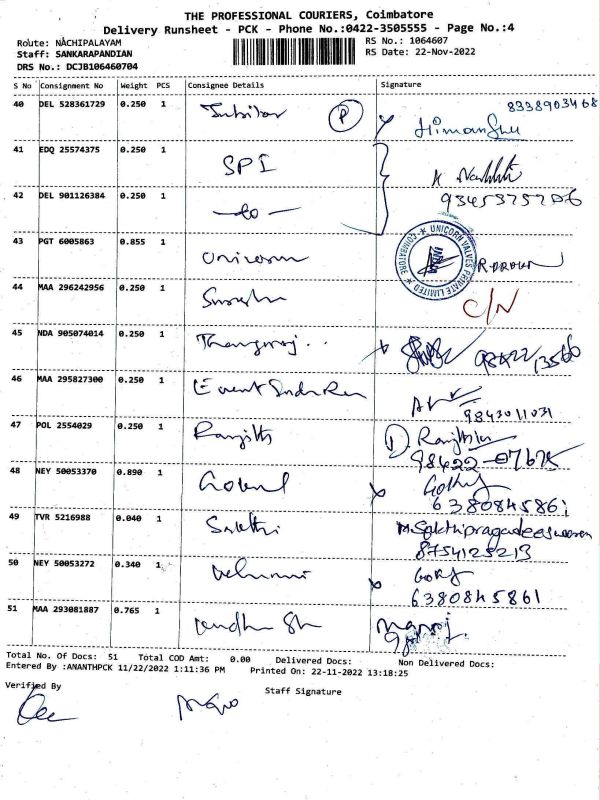 THE PROFESSIONAL COURIERS, Coimbatore
Delivery Runsheet - PCK - Phone No.:0422-3505555 - Page No.:4
Route: NACHIPALAYAM
RS No.: 1064607
Staff: SANKARAPANDIAN
RS Date: 22-Nov-2022
DRS No.: DCJB106460704
S No Consignment No Weight PCS Consignee Details Signature
40 DEL 528361729 0.250 1 P 8338903468
Himanshu
41 EDQ 25574375 0.250 1 SPI
42 DEL 901126384 0.250 1 9345375706
43 PGT 6005863 0.855 1 Unicorn
UNICORN VALVES PRIVATE LIMITED * COIMBATORE *
44 MAA 296242956 0.250 1 C/N
45 NDA 905074014 0.250 1 Thangaraj..
46 MAA 295827300 0.250 1
9843011031
47 POL 2554029 0.250 1 Ranjith
48 NEY 50053370 0.890 1
6380845861
49 TVR 5216988 0.040 1 Sakthi
8754125213
50 NEY 50053272 0.340 1
6380845861
51 MAA 293081887 0.765 1 Manoj
Total No. Of Docs: 51 Total COD Amt: 0.00 Delivered Docs: Non Delivered Docs:
Entered By :ANANTHPCK 11/22/2022 1:11:36 PM Printed On: 22-11-2022 13:18:25
Verified By
Staff Signature